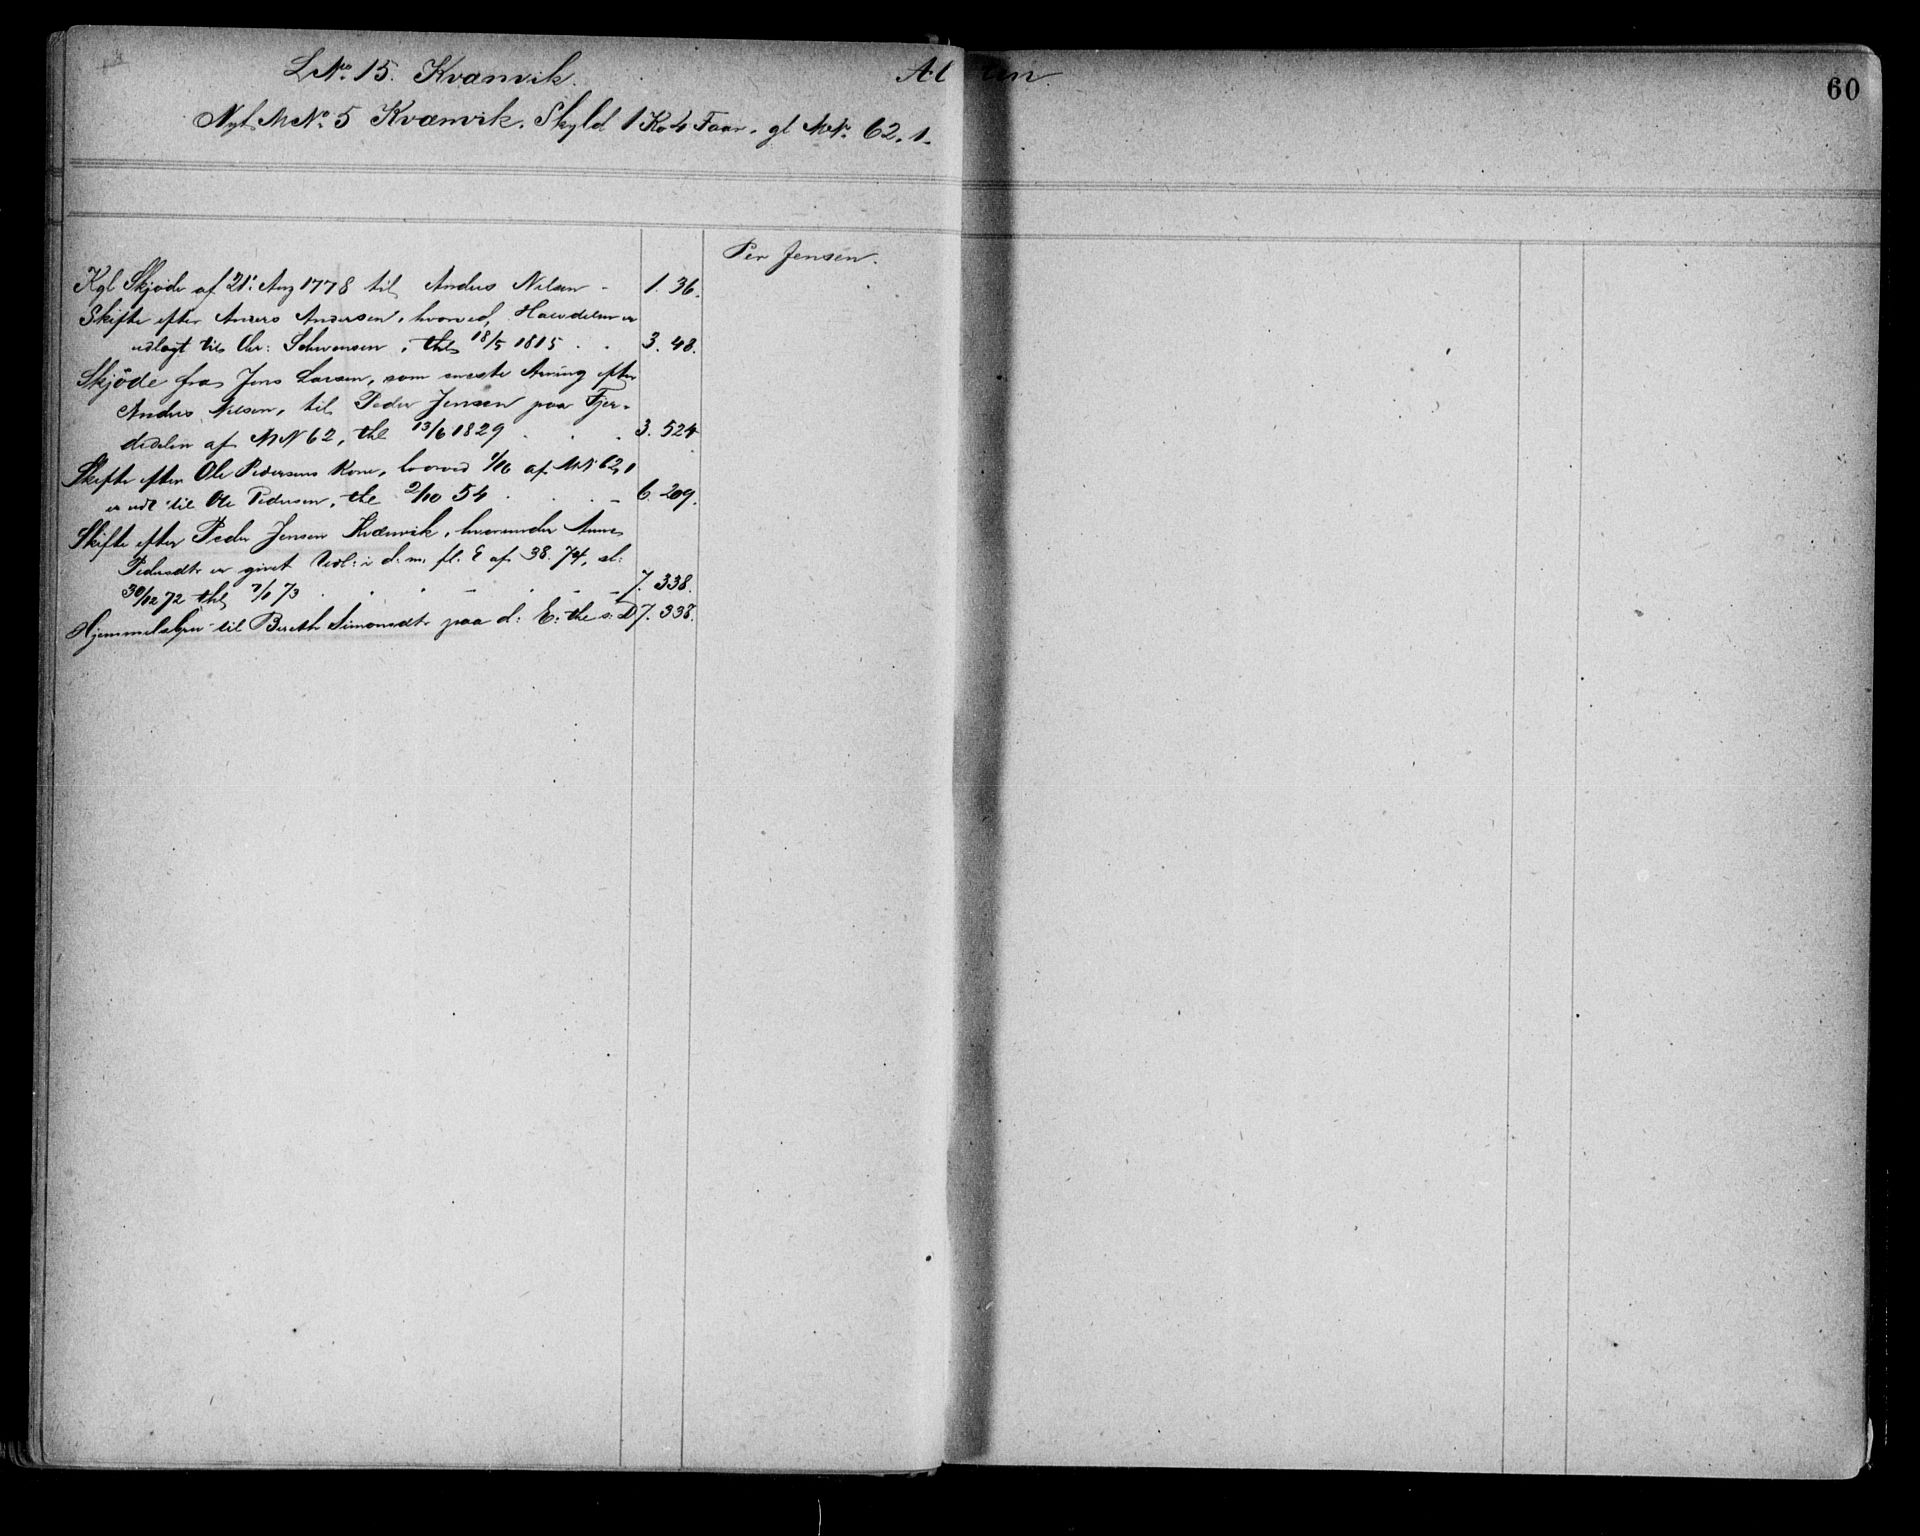 LNo. 15. Kvænvik.
Al ten.
60
Nyt MNo. 5 Kvænvik. Skyld 1 Ko 4 Faar. gl MNr. 62.1.
Per Jensen.
Kgl Skjøde af 21: Aug 1778 til Anders Nilsen - 1. 36.
Skifte efter Anders Andersen, hvorved, Halvdelen er
udlagt til Chr: Schwensen, thl 18/5 1815 . . 3. 48.
Skjöde fra Jens Larsen, som eneste Arving efter
Anders Nilsen, til Peder Jensen paa Fjer-
dedelen af MN 62, thl 13/6 1829 . . . 3. 524
Skifte efter Ole Pedersens Kone, hvorved 1/16 af MN 62,1
er udl til Ole Pedersen, thl 2/10 54 . . . - 6. 209.
Skifte efter Peder Jensen Kvænvik, hvorunder Anne
Pedersdtr er givet Udl: i d. m. fl. E af 38. 74, sl:
30/12 72 thl 7/1 73 . . . - - - - 7. 338.
Hjemmelsbrev til Bereth Simonsdtr paa d: E: thl s: D 7. 338.